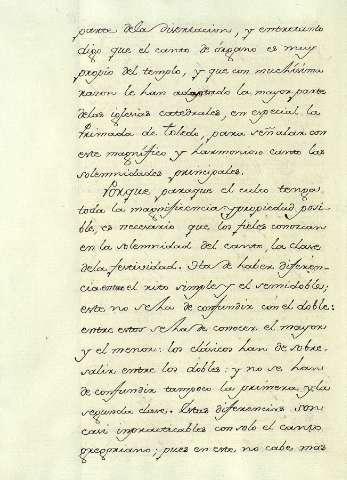 parte dela disertacion, y entretanto
digo que el canto de órgano es muy
propio del templo, y que con muchísima
razon le han adoptado la mayor parte
delas iglesias catedrales, en especial la
Primada de Toledo, para señalar con
este magnífico y harmonioso canto las
solemnidades principales.
Porque paraque el culto tenga
toda la magnificencia y propiedad posi-
ble, es necesario que los fieles conozcan
en la solemnidad del canto, la clase
dela festividad. Ha de haber diferen-
cia entre el rito simple y el semidoble;
este no se ha de confundir con el doble:
entre estos se ha de conocer el mayor
y el menor: los clásicos han de sobre-
salir entre los dobles: y no se han
de confundir tampoco la primera y la
segunda clase. Estas diferencias son
casi impracticables con solo el canto
gregoriano; pues en este no cabe mas